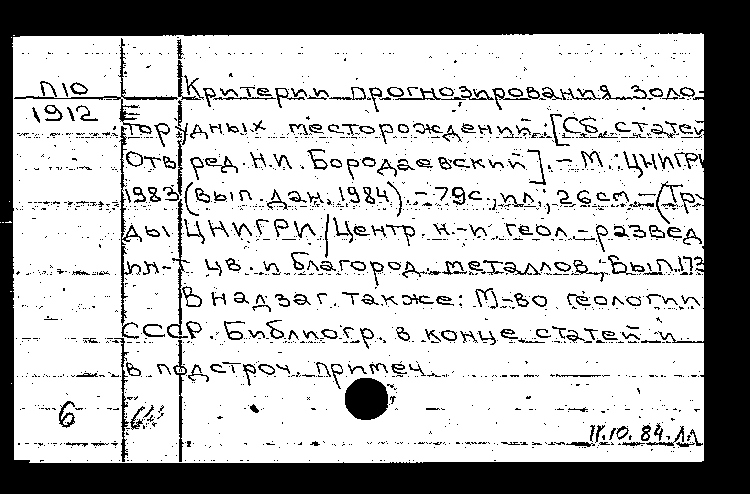 П10 Критерии прогнозирования золо-
1912 торудных месторождений: [Сб. статей
Отв. ред. Н.И. Бородаевский]. – М.: ЦНИГРИ
1983 (вып. дан. 1984). – 79с., ил.; 26 см – (Тру-
ды ЦНИГРИ / Центр. н.-и. геол.-развед
ин-т цв. и благород. металлов; Вып. 173
В надзаг. также: М-во геологии
СССР. Библиогр. в конце статей и
в подстроч. примеч.
6
10. 84.